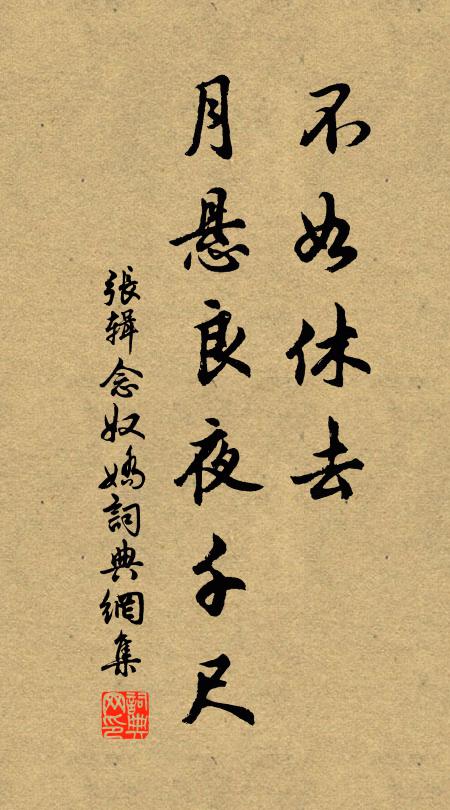 不如休去
月悬良夜千尺
張辑念奴嬌詞典網集
詞典
网印